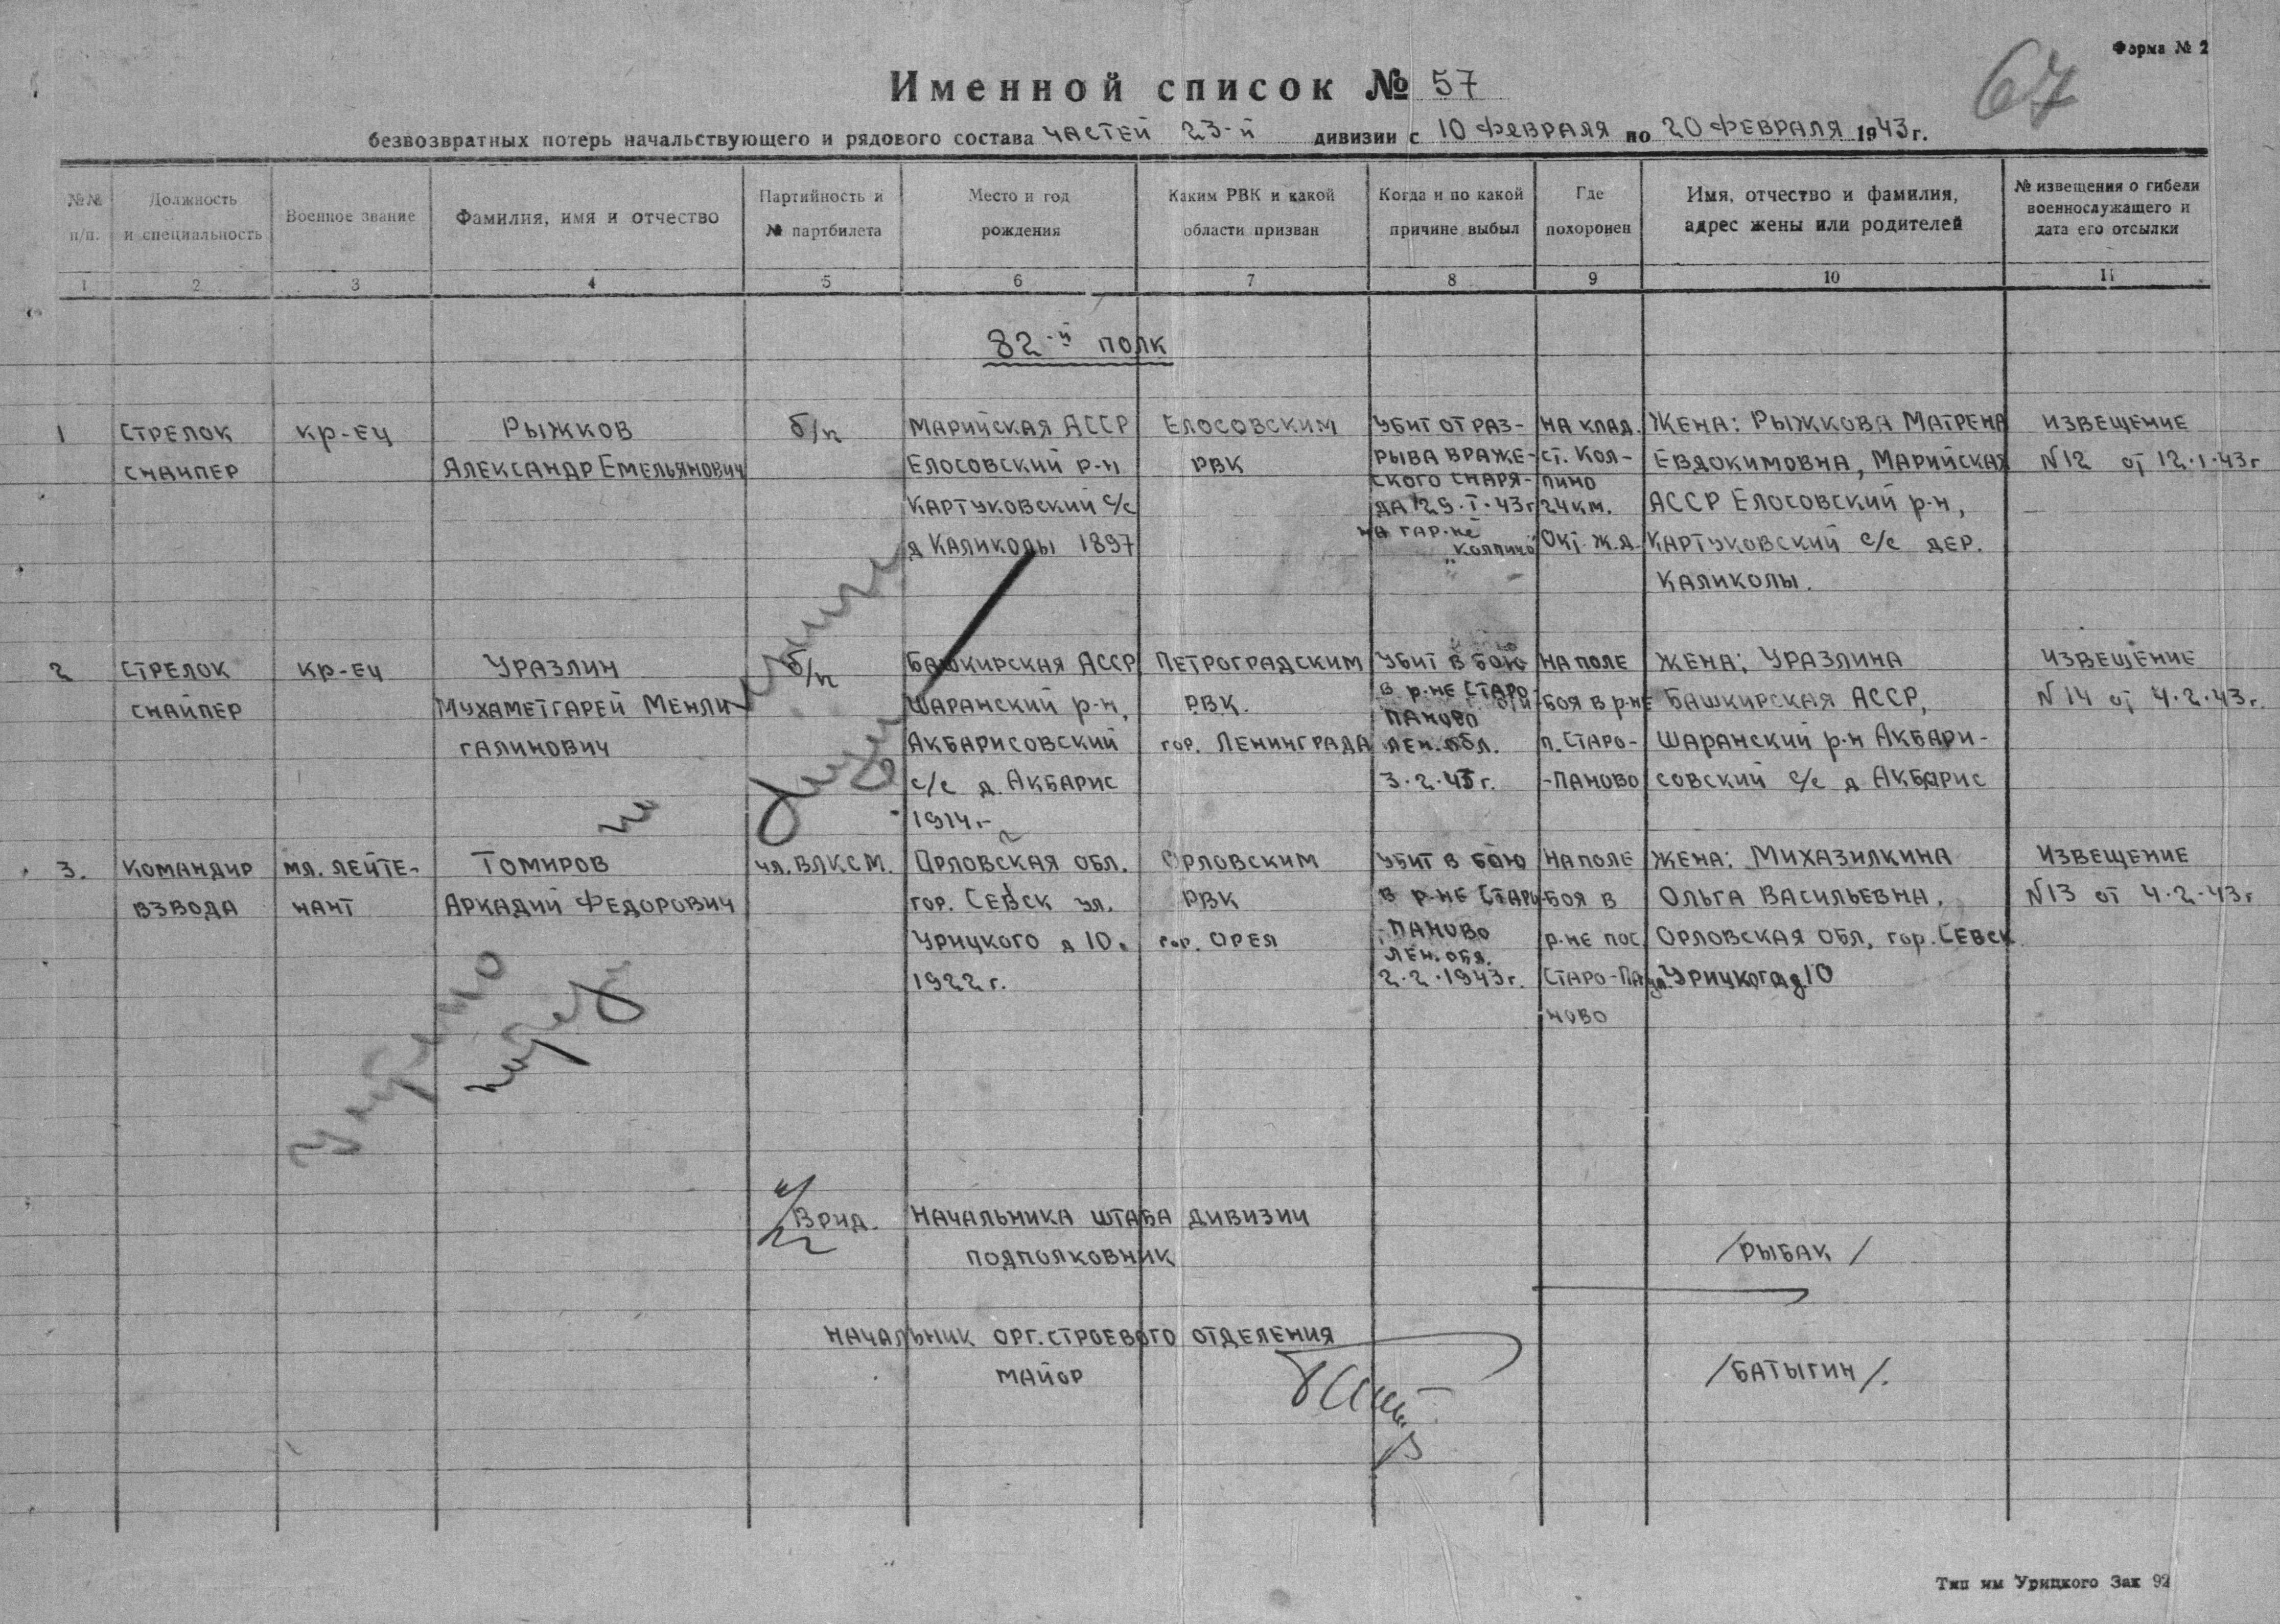 Форма № 2
67
Именной список № 57
безвозвратных потерь начальствующего и рядового состава частей 23-й дивизии с 10 февраля по 20 февраля 1943 г.
№№ п/п.
Должность и специальность
Военное звание
Фамилия, имя и отчество
Партийность и № партбилета
Место и год рождения
Каким РВК и какой области призван
Когда и по какой причине выбыл
Где похоронен
Имя, отчество и фамилия, адрес жены или родителей
№ извещения о гибели военнослужащего и дата его отсылки
1 2 3 4 5 6 7 8 9 10 11
82-й полк
1
Стрелок
снайпер
кр-ец
Рыжков
Александр Емельянович
б/п
Марийская АССР
Елосовский р-н
Картуковский с/с
д Каликолы 1897
Елосовским
РВК
Убит от раз-
рыва враже-
ского снаря-
да 29.I.43г
на гар-не
"Колпино"
На клад.
ст. Кол-
пино
24 км.
Окт. ж.д.
Жена: Рыжкова Матрена
Евдокимовна, Марийская
АССР Елосовский р-н,
Картуковский с/с дер.
Каликолы.
Извещение
N12 от 12.1.43г
2
Стрелок
снайпер
кр-ец
Уразлин
Мухаметгарей Менли
галинович
б/п
Башкирская АССР
Шаранский р-н,
Акбарисовский
с/с д. Акбарис
1914 г
Петроградским
РВК.
гор. Ленинграда
Убит в бою
в р-не Старо
Паново
Лен. обл.
3.2.43г.
На поле
боя в р-не
п. Старо-
-Паново
Жена: Уразлина
Башкирская АССР,
Шаранский р-н Акбари-
совский с/с д Акбарис
Извещение
N14 от 4.2.43г.
3.
Командир
взвода
мл. лейте-
нант
Томиров
Аркадий Федорович
чл. ВЛКСМ.
Орловская обл.
гор. Севск ул.
Урицкого д 10.
1922 г.
Орловским
РВК
гор. Орел
Убит в бою
в р-не Старо
-Паново
Лен. обл.
2.2.1943г.
На поле
боя в
р-не пос.
Старо-Па
ново
Жена: Михазилкина
Ольга Васильевна.
Орловская обл, гор. Севск
ул. Урицкога д. 10
Извещение
N13 от 4.2.43г
Врид. Начальника штаба дивизии
подполковник
/Рыбак/
Начальник орг.строевого отделения
майор
/Батыгин/.
Тип им Урицкого Зак 92